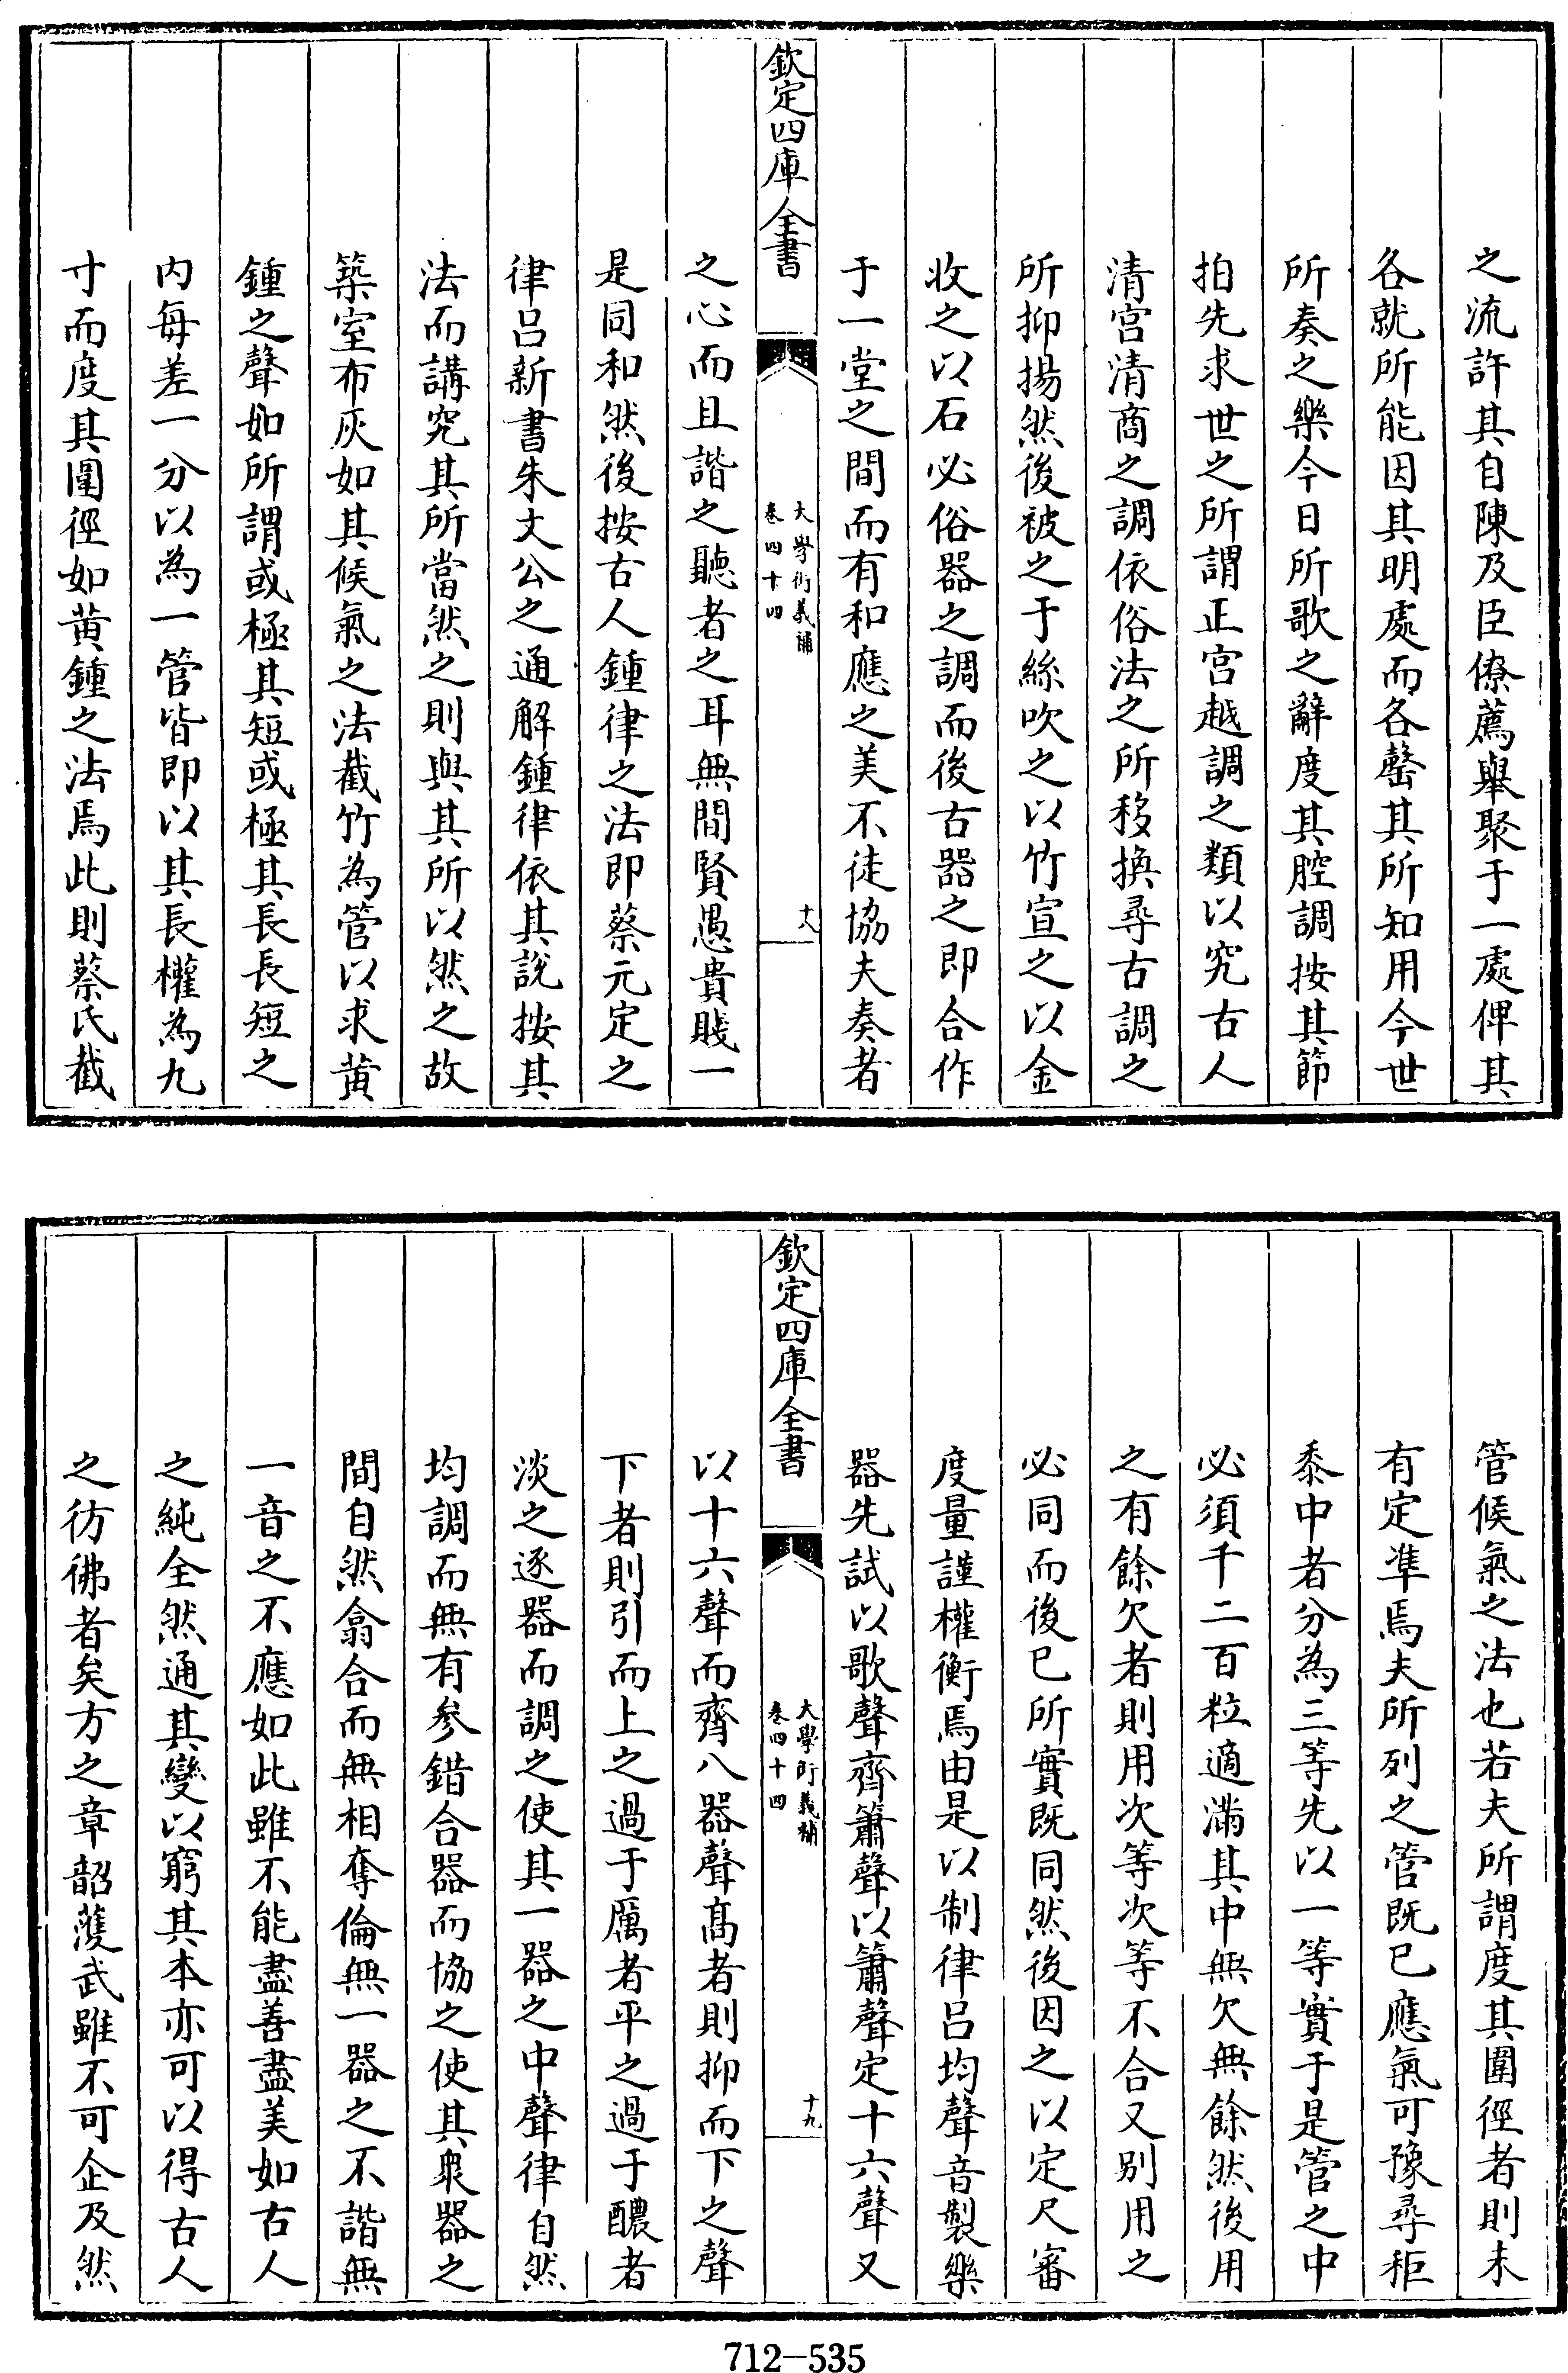 之流許其自陳及臣僚薦舉聚于一處俾其
各就所能因其明處而各罄其所知用今世
所奏之樂今日所歌之辭度其腔調按其節
拍先求世之所謂正宮越調之類以究古人
清宮清商之調依俗法之所移換尋古調之
所抑揚然後被之于絲吹之以竹宣之以金
收之以石必俗器之調而後古器之即合作
于一堂之間而有和應之美不徒協夫奏者
欽定四庫全書
大學衍義補
卷四十四
十八
之心而且諧之聽者之耳無間賢愚貴賤一
是同和然後按古人鍾律之法即蔡元定之
律呂新書朱文公之通解鍾律依其說按其
法而講究其所當然之則與其所以然之故
築室布灰如其候氣之法截竹為管以求黃
鍾之聲如所謂或極其短或極其長長短之
內每差一分以為一管皆即以其長權為九
寸而度其圍徑如黃鍾之法焉此則蔡氏截
管候氣之法也若夫所謂度其圍徑者則未
有定準焉夫所列之管既已應氣可豫尋秬
黍中者分為三等先以一等實于是管之中
必須千二百粒適滿其中無欠無餘然後用
之有餘欠者則用次等次等不合又別用之
必同而後已所實既同然後因之以定尺審
度量謹權衡焉由是以制律呂均聲音製樂
器先試以歌聲齊簫聲以簫聲定十六聲又
欽定四庫全書
大學衍義補
卷四十四
十九
以十六聲而齊八器聲高者則抑而下之聲
下者則引而上之過于厲者平之過于醲者
淡之逐器而調之使其一器之中聲律自然
均調而無有參錯合器而協之使其眾器之
間自然翕合而無相奪倫無一器之不諧無
一音之不應如此雖不能盡善盡美如古人
之純全然通其變以窮其本亦可以得古人
之彷彿者矣方之章韶濩武雖不可企及然
712-535